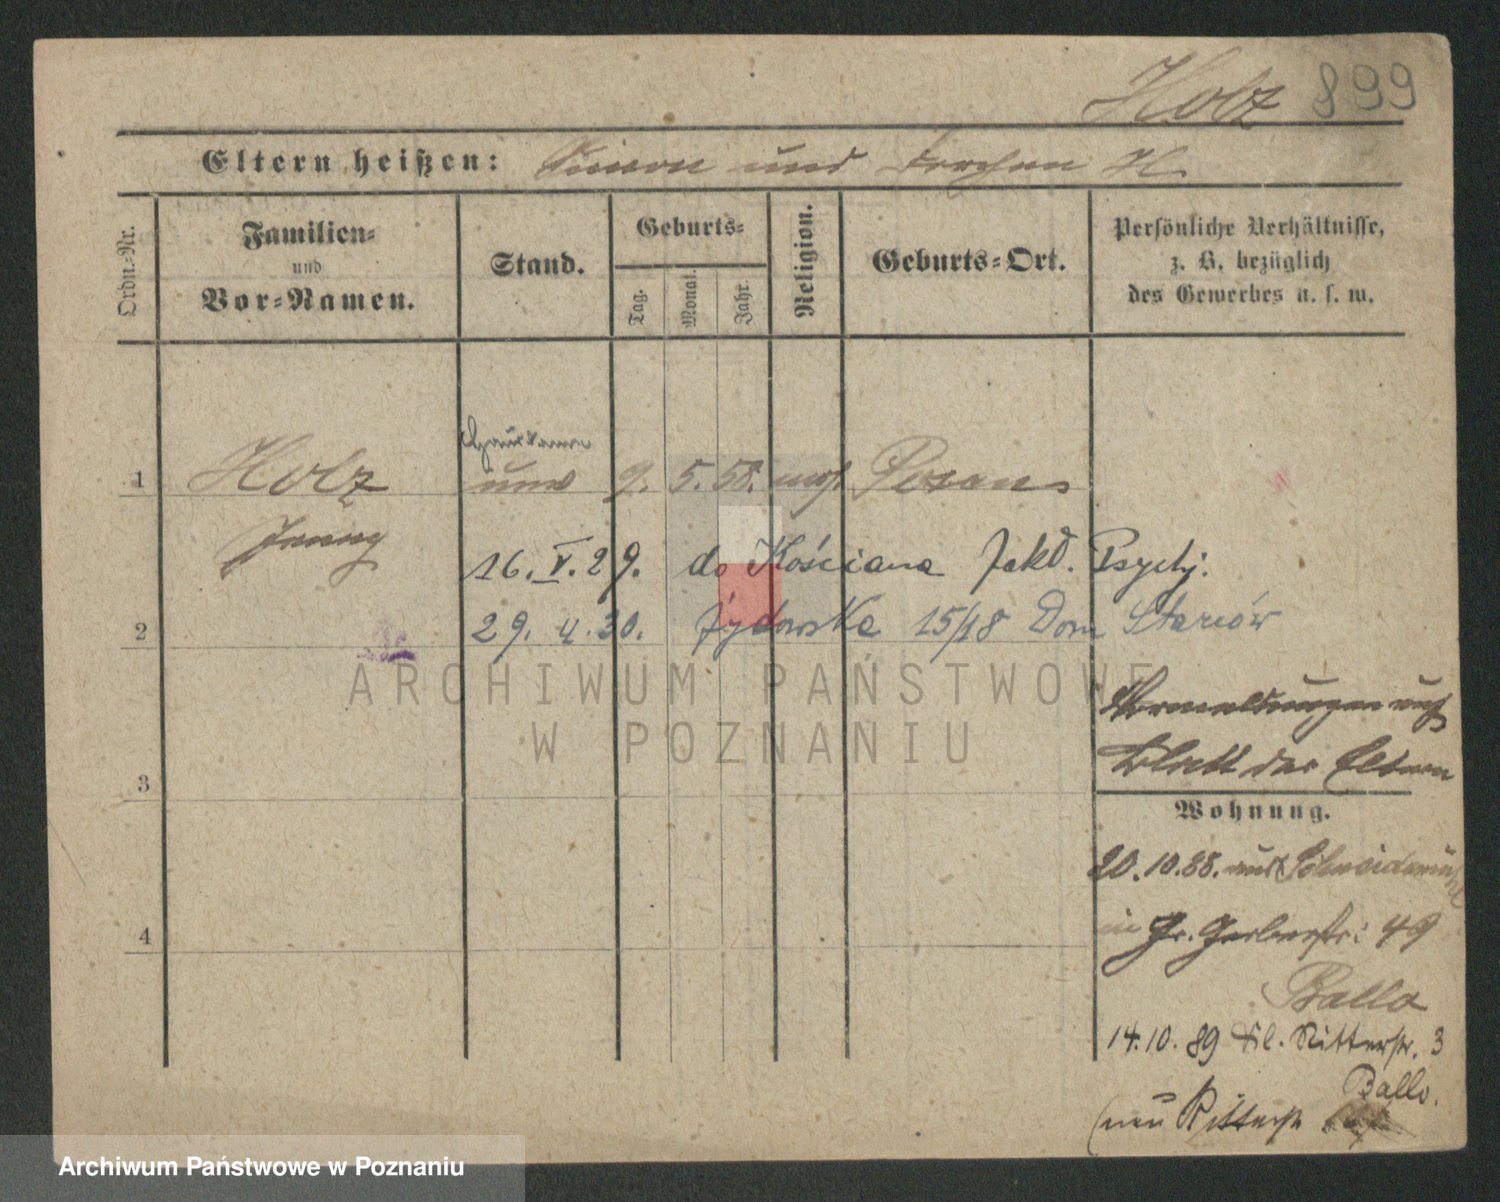 Holz 899
Eltern heißen: Simon und Dorchen H.
Ordn.-Nr.
Familien-
und
Vor-Namen.
Stand.
Geburts-
Tag.
Monat.
Jahr.
Religion.
Geburts-Ort.
Persönliche Verhältnisse,
z. B. bezüglich
des Gewerbes u. s. w.
1 Holz 9. 5. 58. mos. Posen
Jenny
16. V. 29. do Kościana Zakł. Psych.
2 29. 4. 30. Żydowska 15/18 Dom Starców
ARCHIWUM PAŃSTWOWE
W POZNANIU
Blatt der Eltern
3
Wohnung.
20.10.88. aus Schneidemühl
in Gr. Gerberstr: 49
4
Ballo
14.10.89 Kl. Ritterstr. 3
Ballo.
(neu Ritterstr
Archiwum Państwowe w Poznaniu